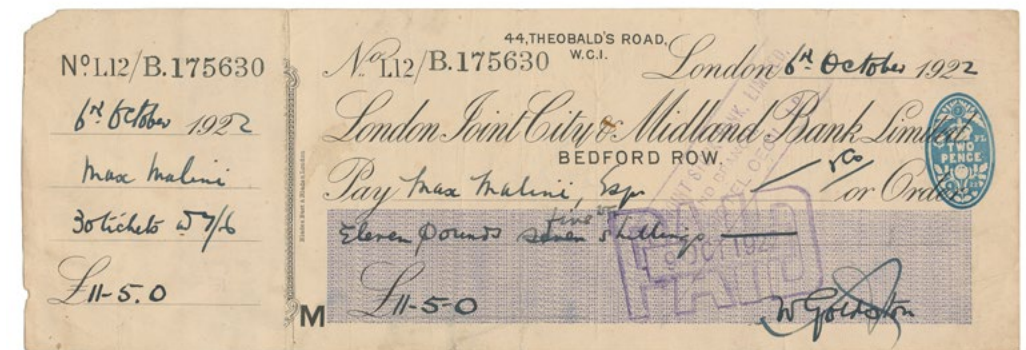 NºL12/B.175630
6th October 1922
Max Malini
30 tickets @ 7/6
£11-5.0
44, THEOBALD'S ROAD,
W.C.1.
NºL12/B.175630
London 6th October 1922
London Joint City & Midland Bank Limited
BEDFORD ROW.
TWO
PENCE
Pay Max Malini, Esqr or Order
Eleven Pounds five seven shillings
£11-5-0
M
W Goldston
PAID
OCT 1922